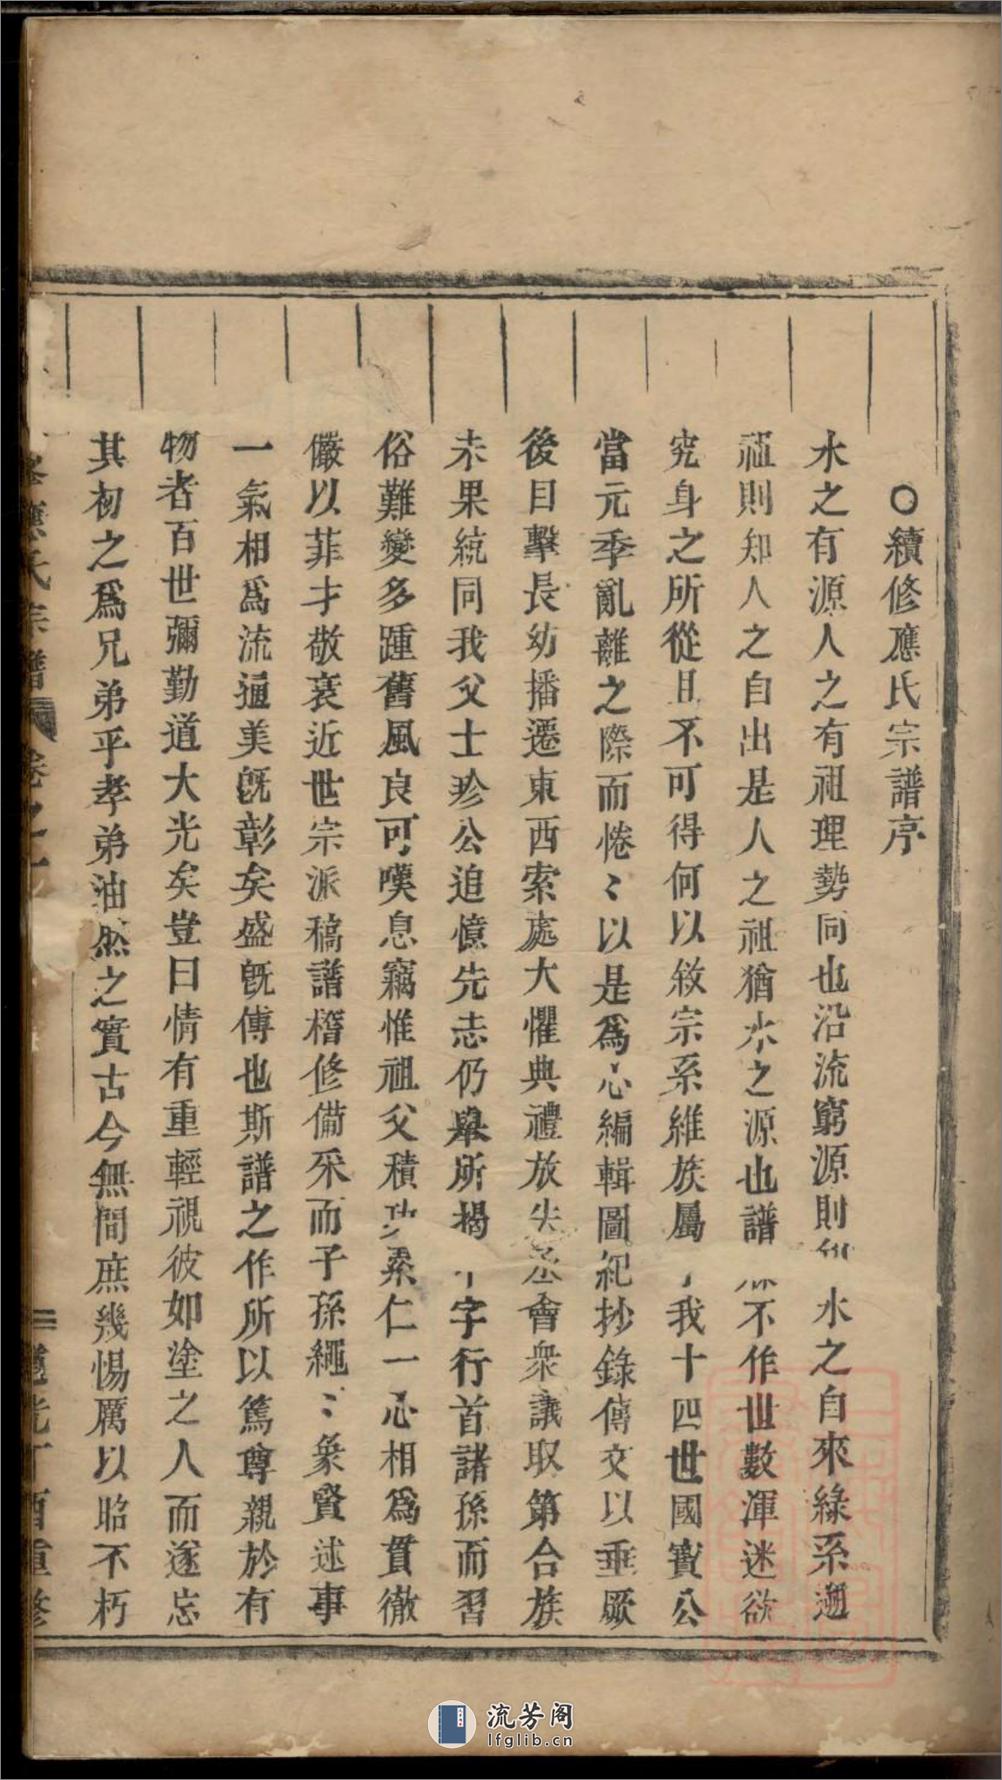 ○續修應氏宗譜序
水之有源人之有祖理勢同也沿流窮源則 水之自來綠系遡
祖則知人之自出是人之祖猶水之源也譜 不作世數渾迷欲
究身之所從且不可得何以敘宗系維族屬 我十四世國賓公
當元季亂離之際而惓〻以是爲心編輯圖紀抄錄傳文以垂厥
後目擊長幼播遷東西索處大懼典禮放失 會衆議取第合族
未果統同我父士珍公追憶先志仍舉所揭 字行首諸孫而習
俗難變多踵舊風良可嘆息竊惟祖父積功累仁一心相爲貫徹
儼以菲才敬裒近世宗派稿譜稽修備采而子孫繩〻衆賢述事
一氣相爲流通美旣彰矣盛旣傳也斯譜之作所以篤尊親於有
物者百世彌勤道大光矣豈曰情有重輕視彼如塗之人而遂忘
其初之爲兄弟乎孝弟油然之實古今無間庶幾惕厲以昭不朽
修應氏宗譜 卷之 二 酉重修
流芳阁
lfglib.cn